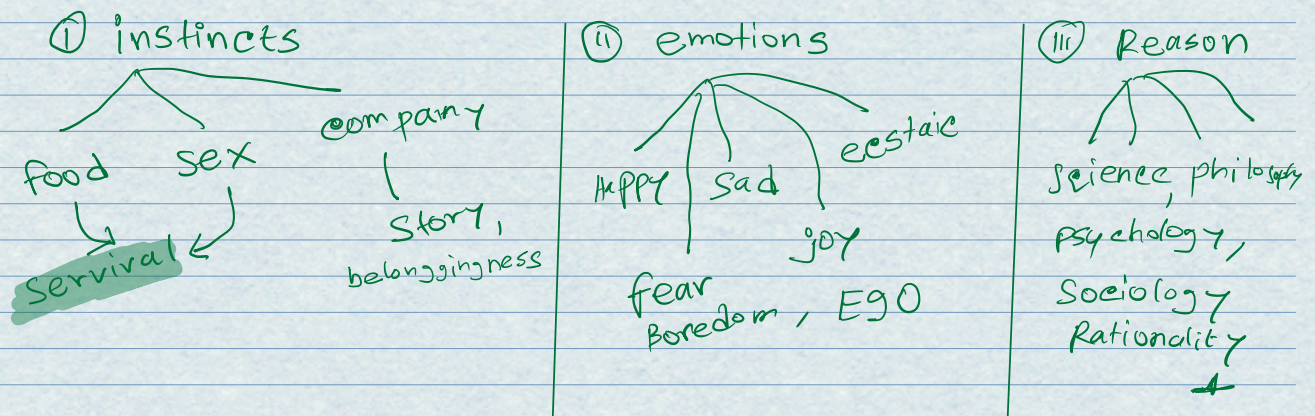 (i) instincts
food
sex
company
story,
belonggingness
Servival
(ii) emotions
Happy
sad
ecstaic
joy
fear
Boredom, EgO
(iii) Reason
science, philosophy
psychology,
Sociology
Rationality